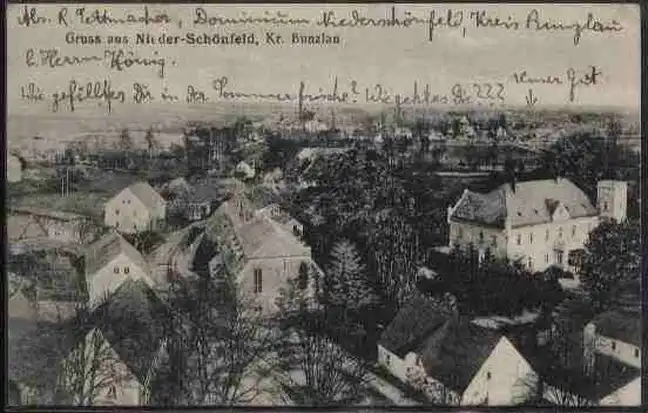 Abs. R. Tettmacher, Dominium Niederschönfeld, Kreis Bunzlau
Gruss aus Nieder-Schönfeld, Kr. Bunzlau
b. Herrn König.
Wie gefällt es Dir in der Sommerfrische? Wie geht es Dir???
unser Gut